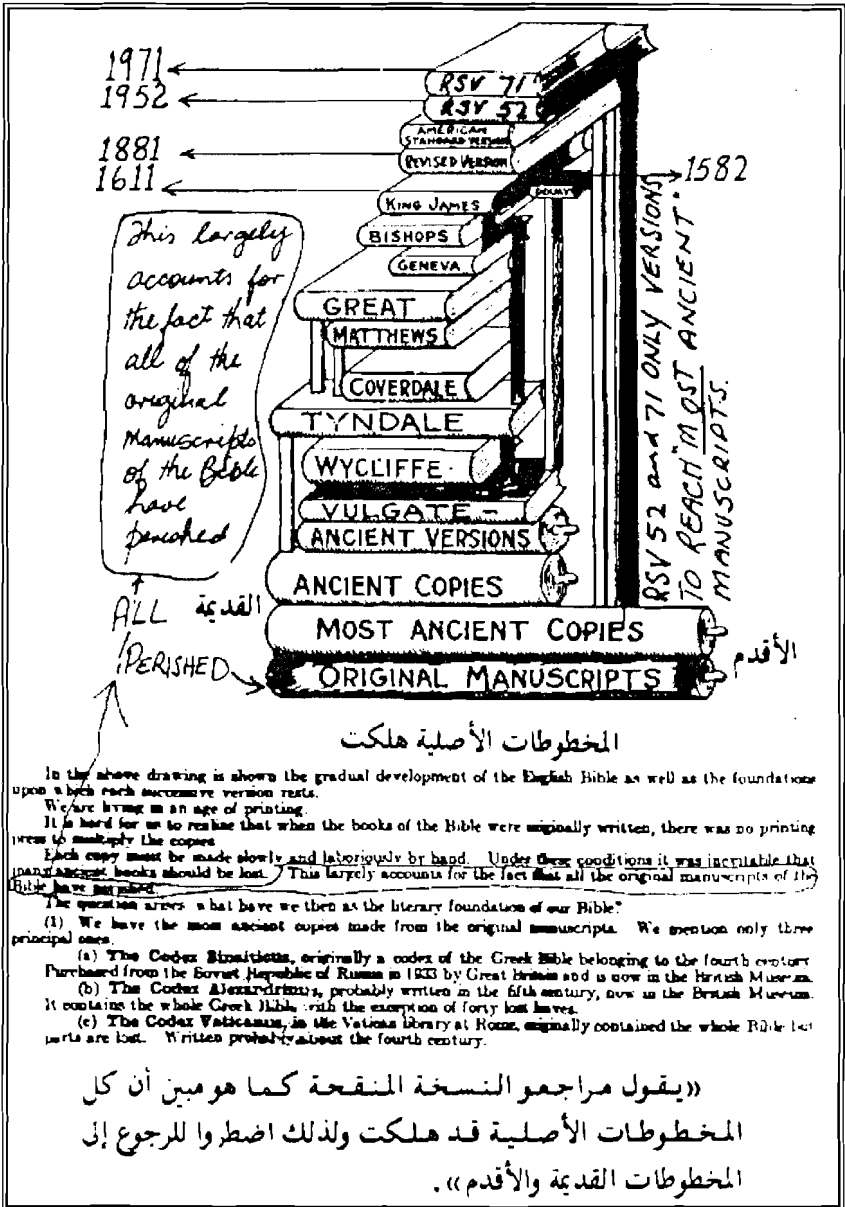 1971
1952
1881
1611
1582
RSV 71
RSV 52
AMERICAN
STANDARD VERSION
REVISED VERSION
DOUAY
KING JAMES
BISHOPS
GENEVA
GREAT
MATTHEWS
COVERDALE
TYNDALE
WYCLIFFE
VULGATE
ANCIENT VERSIONS
ANCIENT COPIES
MOST ANCIENT COPIES
ORIGINAL MANUSCRIPTS
This largely
accounts for
the fact that
all of the
original
Manuscripts
of the Bible
have
perished
ALL
PERISHED
القديمة
الأقدم
RSV 52 and 71 ONLY VERSIONS
TO REACH "MOST ANCIENT"
MANUSCRIPTS.
المخطوطات الأصلية هلكت
In the above drawing is shown the gradual development of the English Bible as well as the foundations
upon which each successive version rests.
We are living in an age of printing.
It is hard for us to realize that when the books of the Bible were originally written, there was no printing
press to multiply the copies
Each copy must be made slowly and laboriously by hand. Under these conditions it was inevitable that
many ancient books should be lost. This largely accounts for the fact that all the original manuscripts of the
Bible have perished.
The question arises, what have we then as the literary foundation of our Bible?
(1) We have the most ancient copies made from the original manuscripts. We mention only three
principal ones.
(a) The Codex Sinaiticus, originally a codex of the Greek Bible belonging to the fourth century.
Purchased from the Soviet Republic of Russia in 1933 by Great Britain and is now in the British Museum.
(b) The Codex Alexandrinus, probably written in the fifth century, now in the British Museum.
It contains the whole Greek Bible with the exception of forty lost leaves.
(c) The Codex Vaticanus, in the Vatican library at Rome, originally contained the whole Bible but
parts are lost. Written probably about the fourth century.
«يقول مراجعو النسخة المنقحة كما هو مبين أن كل
المخطوطات الأصلية قد هلكت ولذلك اضطروا للرجوع إلى
المخطوطات القديمة والأقدم».